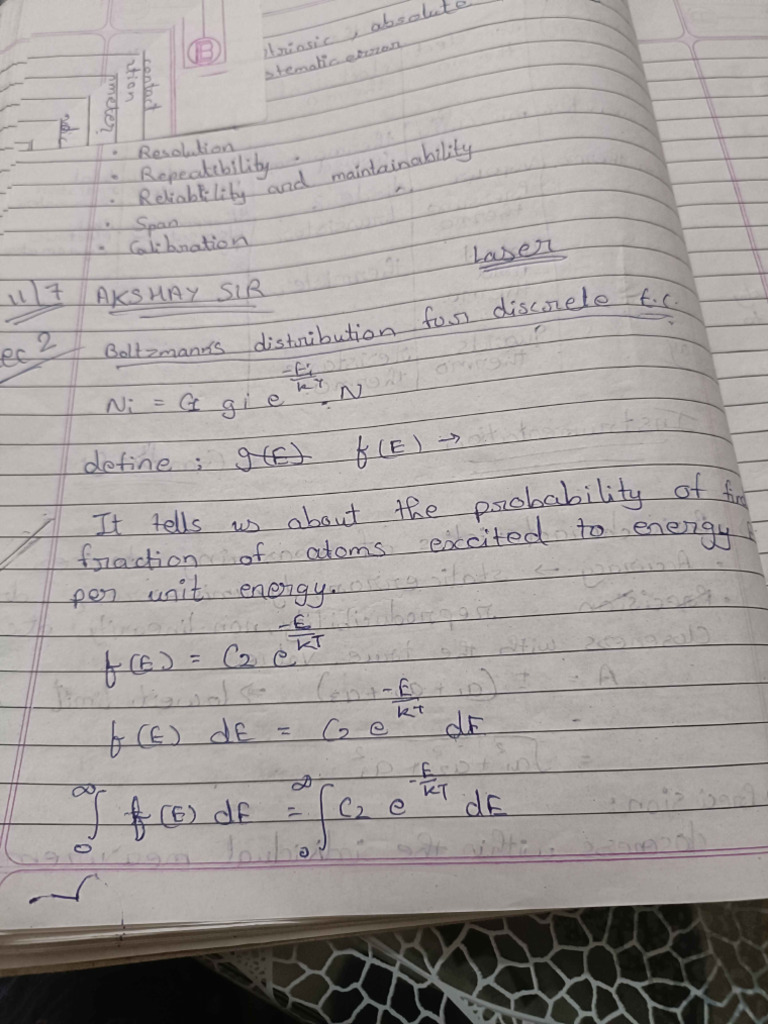 absolute
stematic error
B
contact
ation
nmeter
• Resolution
• Repeatibility
• Reliability and maintainability
• Span
• Calibration
Laser
11/7 AKSHAY SIR
ec 2 Boltzmann's distribution for discrete f.c.
Ni = C1 gi e^(-Ei/KT) . N
define ; g(E) f(E) →
It tells us about the probability of
fraction of atoms excited to energy
per unit energy.
f(E) = C2 e^(-E/KT)
f(E) dE = C2 e^(-E/KT) dE
∫₀^∞ f(E) dE = ∫₀^∞ C2 e^(-E/KT) dE